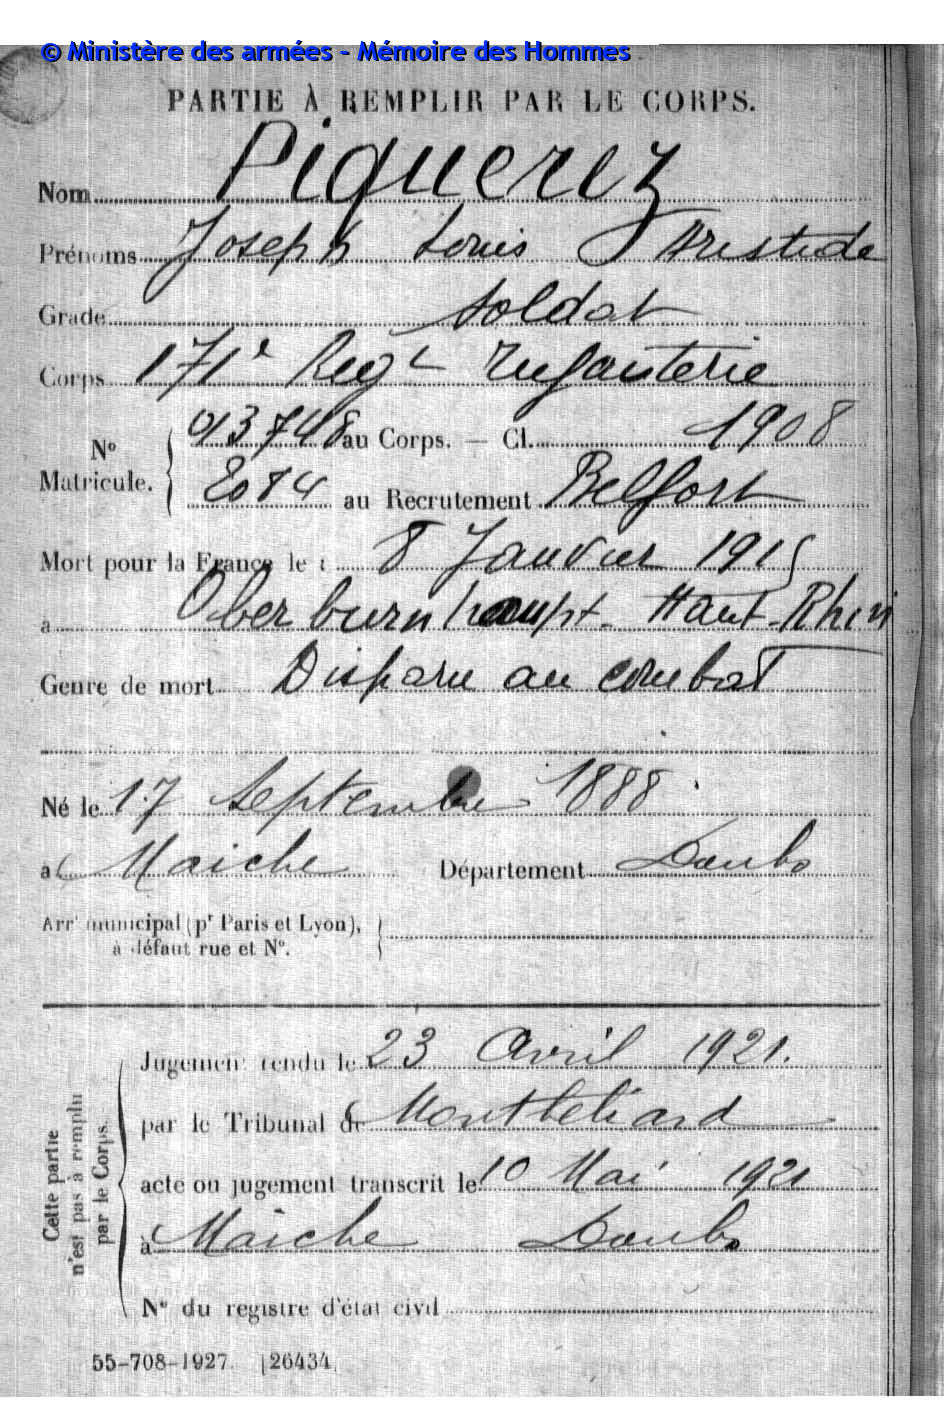 © Ministère des armées - Mémoire des Hommes
PARTIE À REMPLIR PAR LE CORPS.
Nom Piquerez
Prénoms Joseph Louis Aristide
Grade Soldat
Corps 171e Regt Infanterie
013748 au Corps. — Cl. 1908
N° Matricule.
2084 au Recrutement Belfort
Mort pour la France le 8 Janvier 1915
à Oberburnhaupt - Haut-Rhin
Genre de mort Disparu au combat
Né le 17 Septembre 1888
à Maiche Département Doubs
Arrt municipal (pr Paris et Lyon),
à défaut rue et N°.
Cette partie
n'est pas à remplir
par le Corps.
Jugement rendu le 23 Avril 1921.
par le Tribunal de Montbéliard
acte ou jugement transcrit le 10 Mai 1921
à Maiche Doubs
N° du registre d'état civil
55-708-1927. [26434]